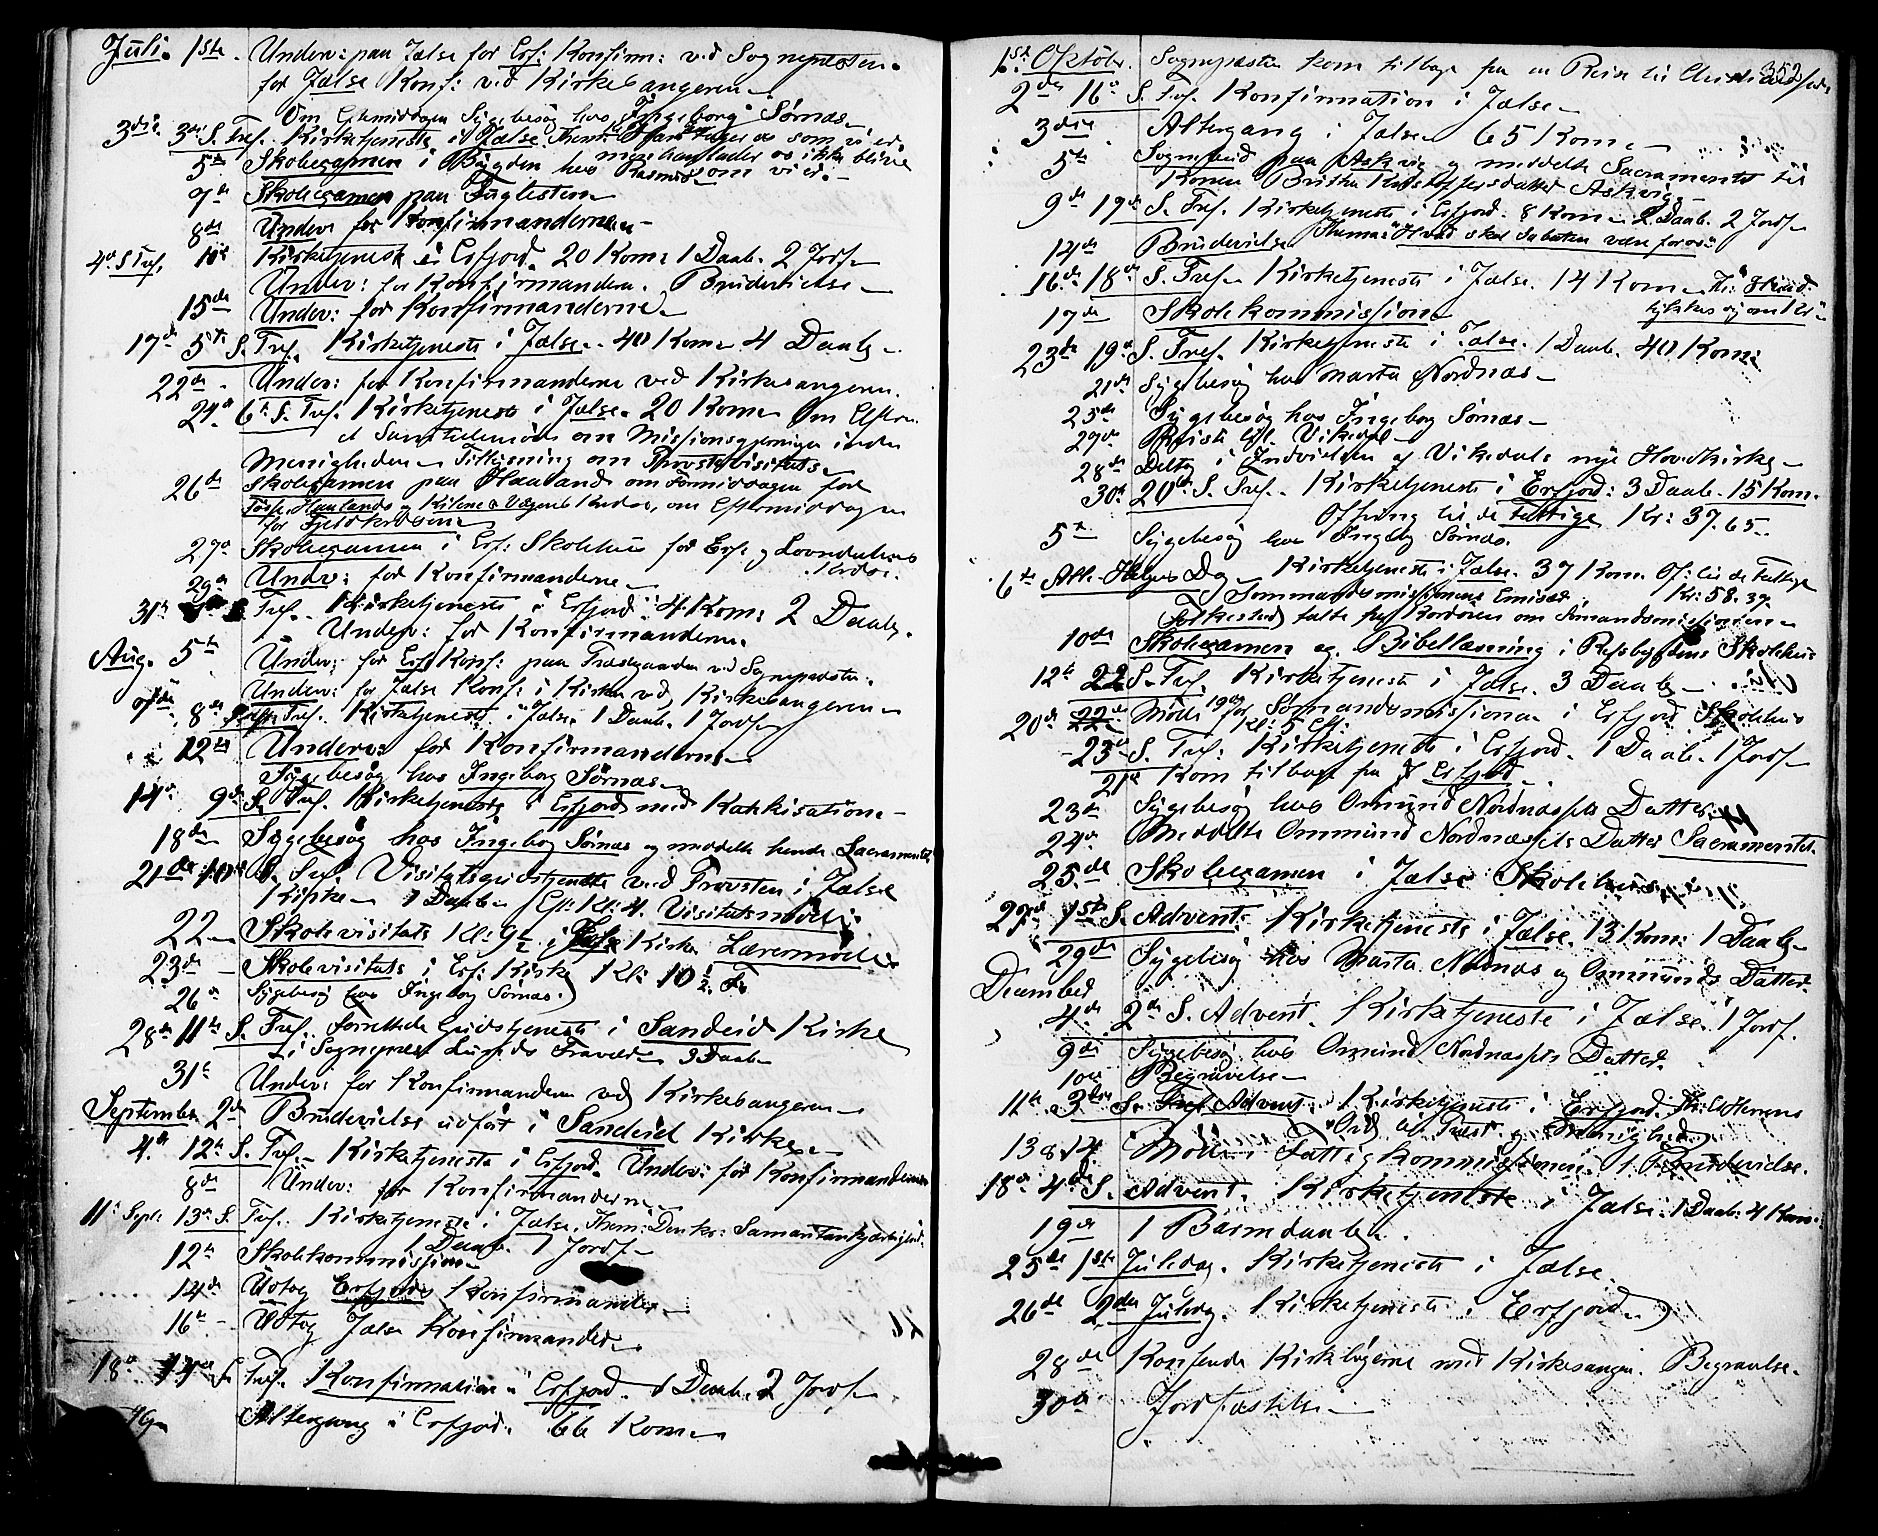 Juli. 1ste. Underv: paa Jælse for Erf: Konfirm: ved Sognepresten.
for Jælse Konf: ved Kirkesangeren
Om Eftermiddagen Sygebesög hos Ingeborg Sörnæs
3die 3die S. Tref. Kirketjeneste i Jælse Them: tager os som vi er,
men lader os ikke blive som vi er.
5te Skoleexamen i Bygden hos Rasmus
7de Skoleexamen paa Foglesten
8de Underv for Konfirmanderne
4de S Tref. 10de Kirketjeneste i Erfjord. 20 Kom: 1 Daab. 2 Jordf
Underv: for Konfirmandern. Brudevielse
15de Underv: for Konfirmanderne
17de 5te S. Tref. Kirketjeneste i Jælse. 40 Kom 4 Daab
22de Underv: for Konfirmanderne ved Kirkesangeren
24de 6te S. Tref. Kirketjeneste i Jælse. 20 Kom Om Efterm.
et Samtalemöde om Missionsgjerningen inden
Menigheden Tillysning om Provstevisitats
26de Skoleexamen paa Haaland om Formiddagen for
Haalands og Kilene & Vaagenes Kreds, om Eftermiddagen
for Fjeldkredsen
27de Skoleexamen i Erf: Skolehus for Erf. og Lovradalens
Kreds.
29de Underv: for Konfirmanderne
31te Tref. Kirketjeneste i Erfjord: 4 Kom: 2 Daab.
Underv: for Konfirmanderne.
Aug. 5te Underv: for Erf: Konf: paa Præstgaarden ved Sognepresten.
Underv: for Jælse Konf: i Kirken ved Kirkesangeren
7de 8de S. Tref. Kirketjeneste i Jælse 1 Daab. 1 Jordf
12te Underv: for Konfirmanderne
Sygebesög hos Ingeborg Sörnæs
14de 9de S. Tref. Kirketjeneste i Erfjord med Katekisation
18de Sygebesög hos Ingeborg Sörnæs og meddelte hende Sacramentet
21de 10de S. Tref. Visitatsgudstjeneste ved Provsten i Jælse
Kirke 1 Daab Eft: Kl: 4. Visitatsmöde
22 Skolevisitats Kl: 9½ i Jælse Kirke Læremöde
23de Skolevisitats i Erf: Kirke Kl: 10½ F
26de Sygebesög hos Ingeborg Sörnæs.
28de 11te S. Tref. Forrettede Gudstjeneste i Sandeid Kirke
i Sognepræst Fravær 3 Daab
31te Underv: for Konfirmandern ved Kirkesangeren
September 2de Brudevielse udfört i Sandeid Kirke
4de 12te S. Tref. Kirketjeneste i Erfjord. Underv: for Konfirmanderne
8de Underv: for Konfirmanderne
11te Sept: 13de S. Tref. Kirketjeneste i Jælse. Them: Den kr: Samaritankjærlighed.
1 Daab. 1 Jordf
12te Skolekommission
14de Udtog Erfjords Konfirmander
16te Udtog Jælse Konfirmander
18de 14de S. Tref. Konfirmation i Erfjord. 1 Daab. 2 Jordf
19 Altergang i Erfjord. 66 Kom
352
1ste Oktober. Sognepresten kom tilbage fra en Reise til Christiansfeld
2den 16de S. Tref. Konfirmation i Jælse
3die Altergang i Jælse 65 Kom.
5te Sognebud paa Askvig og meddelte Sacramentet til
Konen Britha Kristoffersdatter Askvig.
9de 17de S. Tref. Kirketjeneste i Erfjord. 8 Kom 2 Daab. 2 Jordf
Thema: Hvad skal Sabaten være for os:
14de Brudevielse
16de 18de S. Tref. Kirketjeneste i Jælse. 14 Kom
17de Skolekommission
23de 19de S. Tref. Kirketjeneste i Jælse. 1 Daab. 40 Kom:
21de Sygebesög hos Marta Nordnæs
25de Sygebesög hos Ingeborg Sörnæs
27de Reiste til Vikedal
28de Deltog i Indvielsen af Vikedals nye Hovedkirke
30te 20de S. Tref. Kirketjeneste i Erfjord: 3 Daab. 15 Kom.
Offring til de Fattige Kr: 37.65.
5te Sygebesög hos Ingeborg Sörnæs.
6te Alle Helgens Dag Kirketjeneste i Jælse. 37 Kom. Of: til de Fattige
Kr: 58.37.
Sömandsmissionens Emisær
Folkestad talte fra Kordören om Sömandsmissionen
10de Skoleexamen og Bibellæsning i Refsbygdens Skolehus
12te 22 S. Tref. Kirketjeneste i Jælse. 3 Daab
20de 22de Möde for Sömandsmissionen i Erfjord Skolehus
19de Kl: 5 Eft:
23de S. Tref: Kirketjeneste i Erfjord. 1 Daab. 1 Jordf
21de Kom tilbage fra Erfjord
23de Sygebesög hos Ommund Nordnæspts Datter
24de Meddelte Ommund Nordnæspts Datter Sacramentet.
25de Skoleexamen i Jælse Skolehus
27de 1ste S. Advent. Kirketjeneste i Jælse. 13 Kom: 1 Daab
29de Sygebesög hos Marta Nordnæs og Ommunds Datter
December
4de 2den S. Advent. Kirketjeneste i Jælse. 1 Jordf.
9de Sygebesög hos Ommund Nordnæspts Datter.
10de Begravelse
11te 3die S. Tref Advent. Kirketjeneste i Erfjord. Th: Herrens
Ord til Præst og Menighed
13 & 14 Möde i Fattigkommissionen. 1 Brudevielse.
18de 4de S. Advent. Kirketjeneste i Jælse. 1 Daab: 4 Kom:
19de 1 Barnedaab.
25de 1ste Juledag. Kirketjeneste i Jælse.
26de 2den Juledag. Kirketjeneste i Erfjord
28de Konferede Kirkebögerne med Kirkesangeren. Begravelse.
30de Jordfæstelse